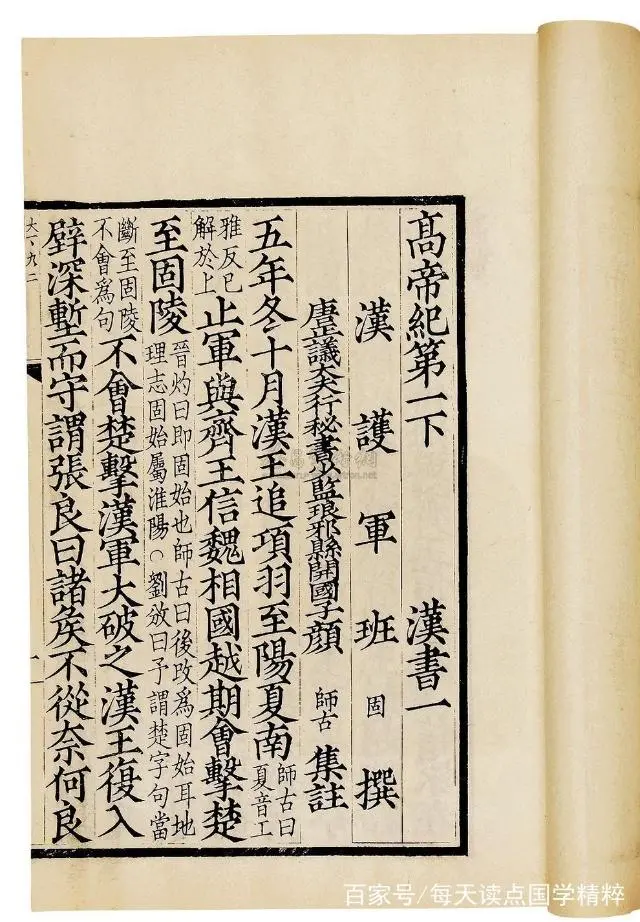 髙帝紀第一下 漢書一
漢護軍班固撰
唐正議大夫行秘書少監琅邪縣開國子顏師古集註
五年冬十月漢王追項羽至陽夏南師古曰夏音工
雅反已解於上止軍與齊王信魏相國越期會擊楚
至固陵晉灼曰即固始也師古曰後改爲固始耳地理志固始屬淮陽○劉攽曰予謂楚字句當
斷至固陵不會爲句不會楚擊漢軍大破之漢王復入
壁深塹而守謂張良曰諸矦不從奈何良
百家号/每天读点国学精粹